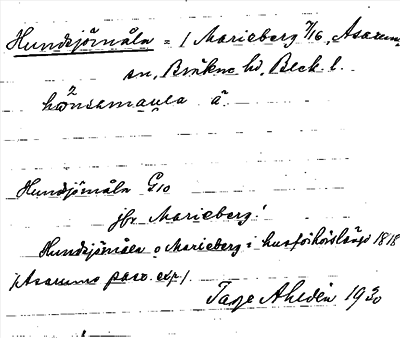 Hundsjömåla = / Marieberg 7/16, Asarums
sn, Bräkne hd, Bleck. l.
hön2samaula ä.
Hundsjömåla G10
jfr Marieberg!
Hundsjömåla o Marieberg i husförhörslängd 1818
/Asarums past. exp/.
Tage Ahldén 1930